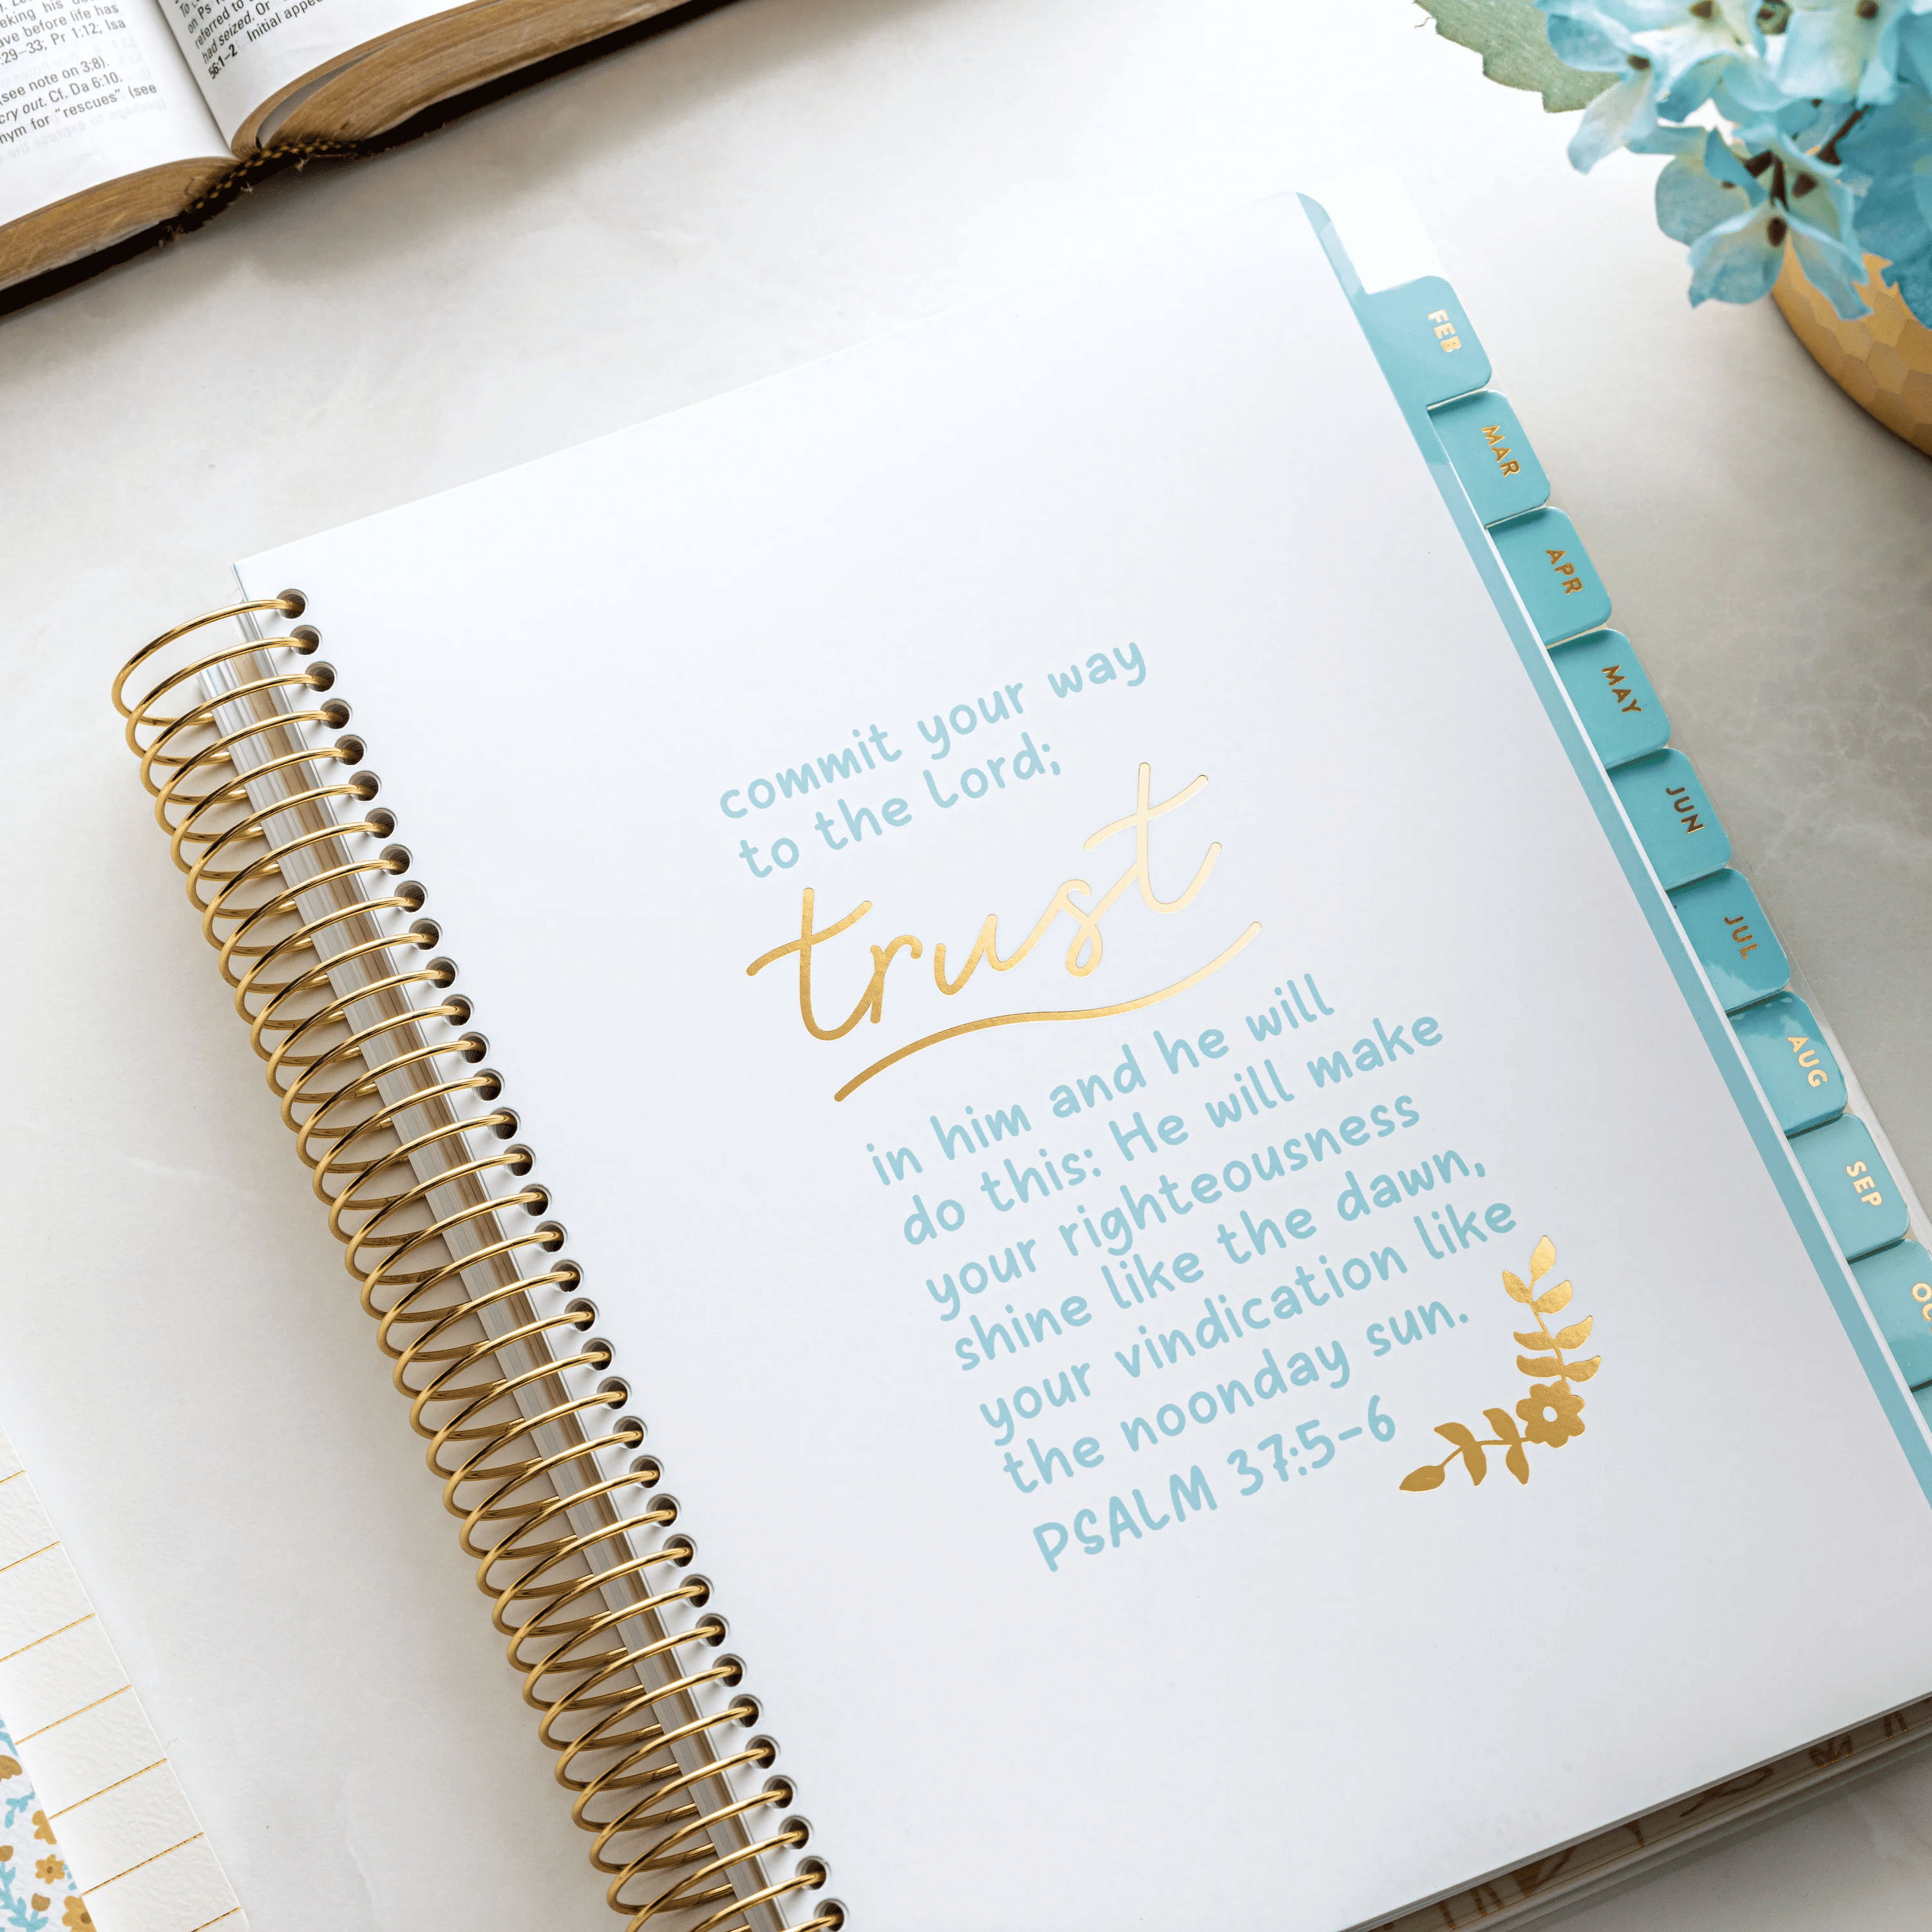 eking his
ave before life has
:29–33; Pr 1:12; Isa
(see note on 3:8).
cry out. Cf. Da 6:10,
nym for "rescues" (see
on Ps
referred to
had seized. Or
56:1–2 Initial
commit your way
to the Lord;
trust
in him and he will
do this: He will make
your righteousness
shine like the dawn,
your vindication like
the noonday sun.
PSALM 37:5-6
FEB
MAR
APR
MAY
JUN
JUL
AUG
SEP